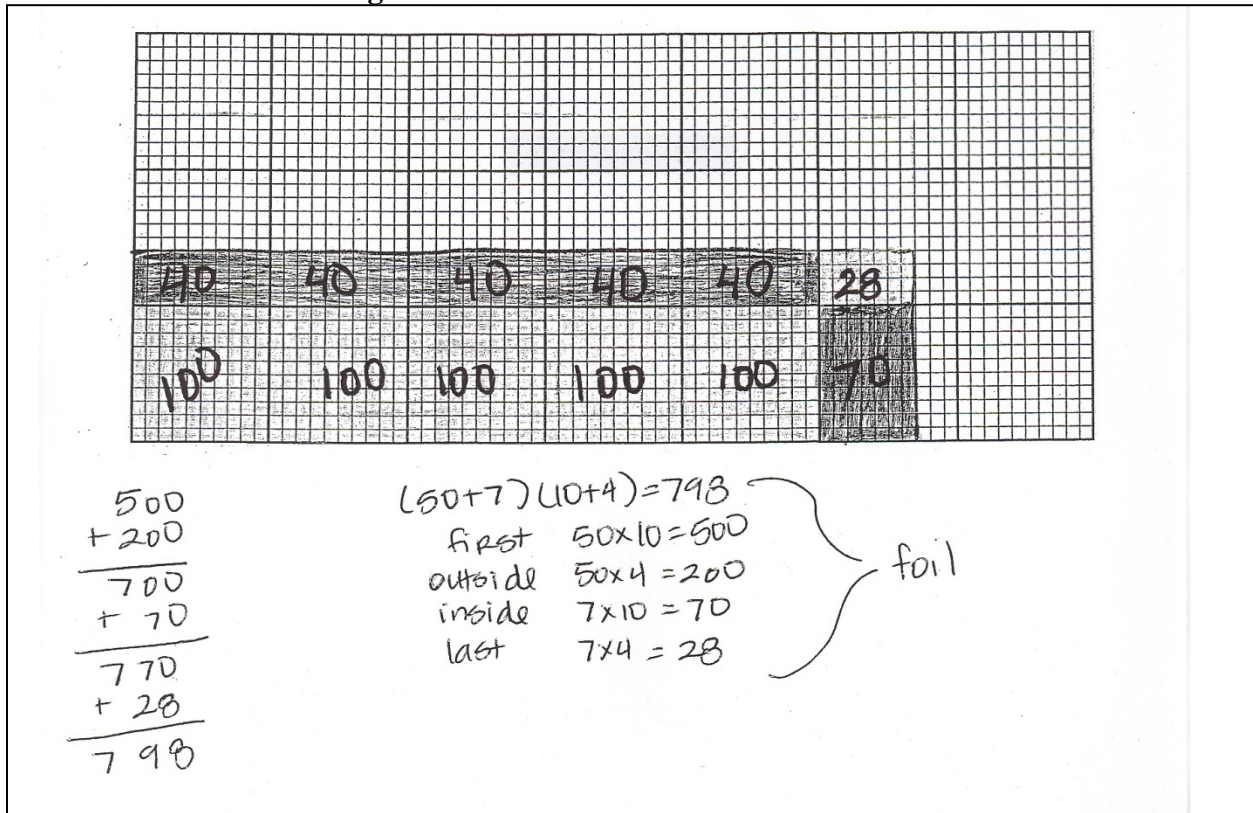 40 40 40 40 40 28
100 100 100 100 100 70
500
+ 200
700
+ 70
770
+ 28
798
(50+7)(10+4)=798
first 50×10=500
outside 50×4=200
inside 7×10=70
last 7×4=28
foil